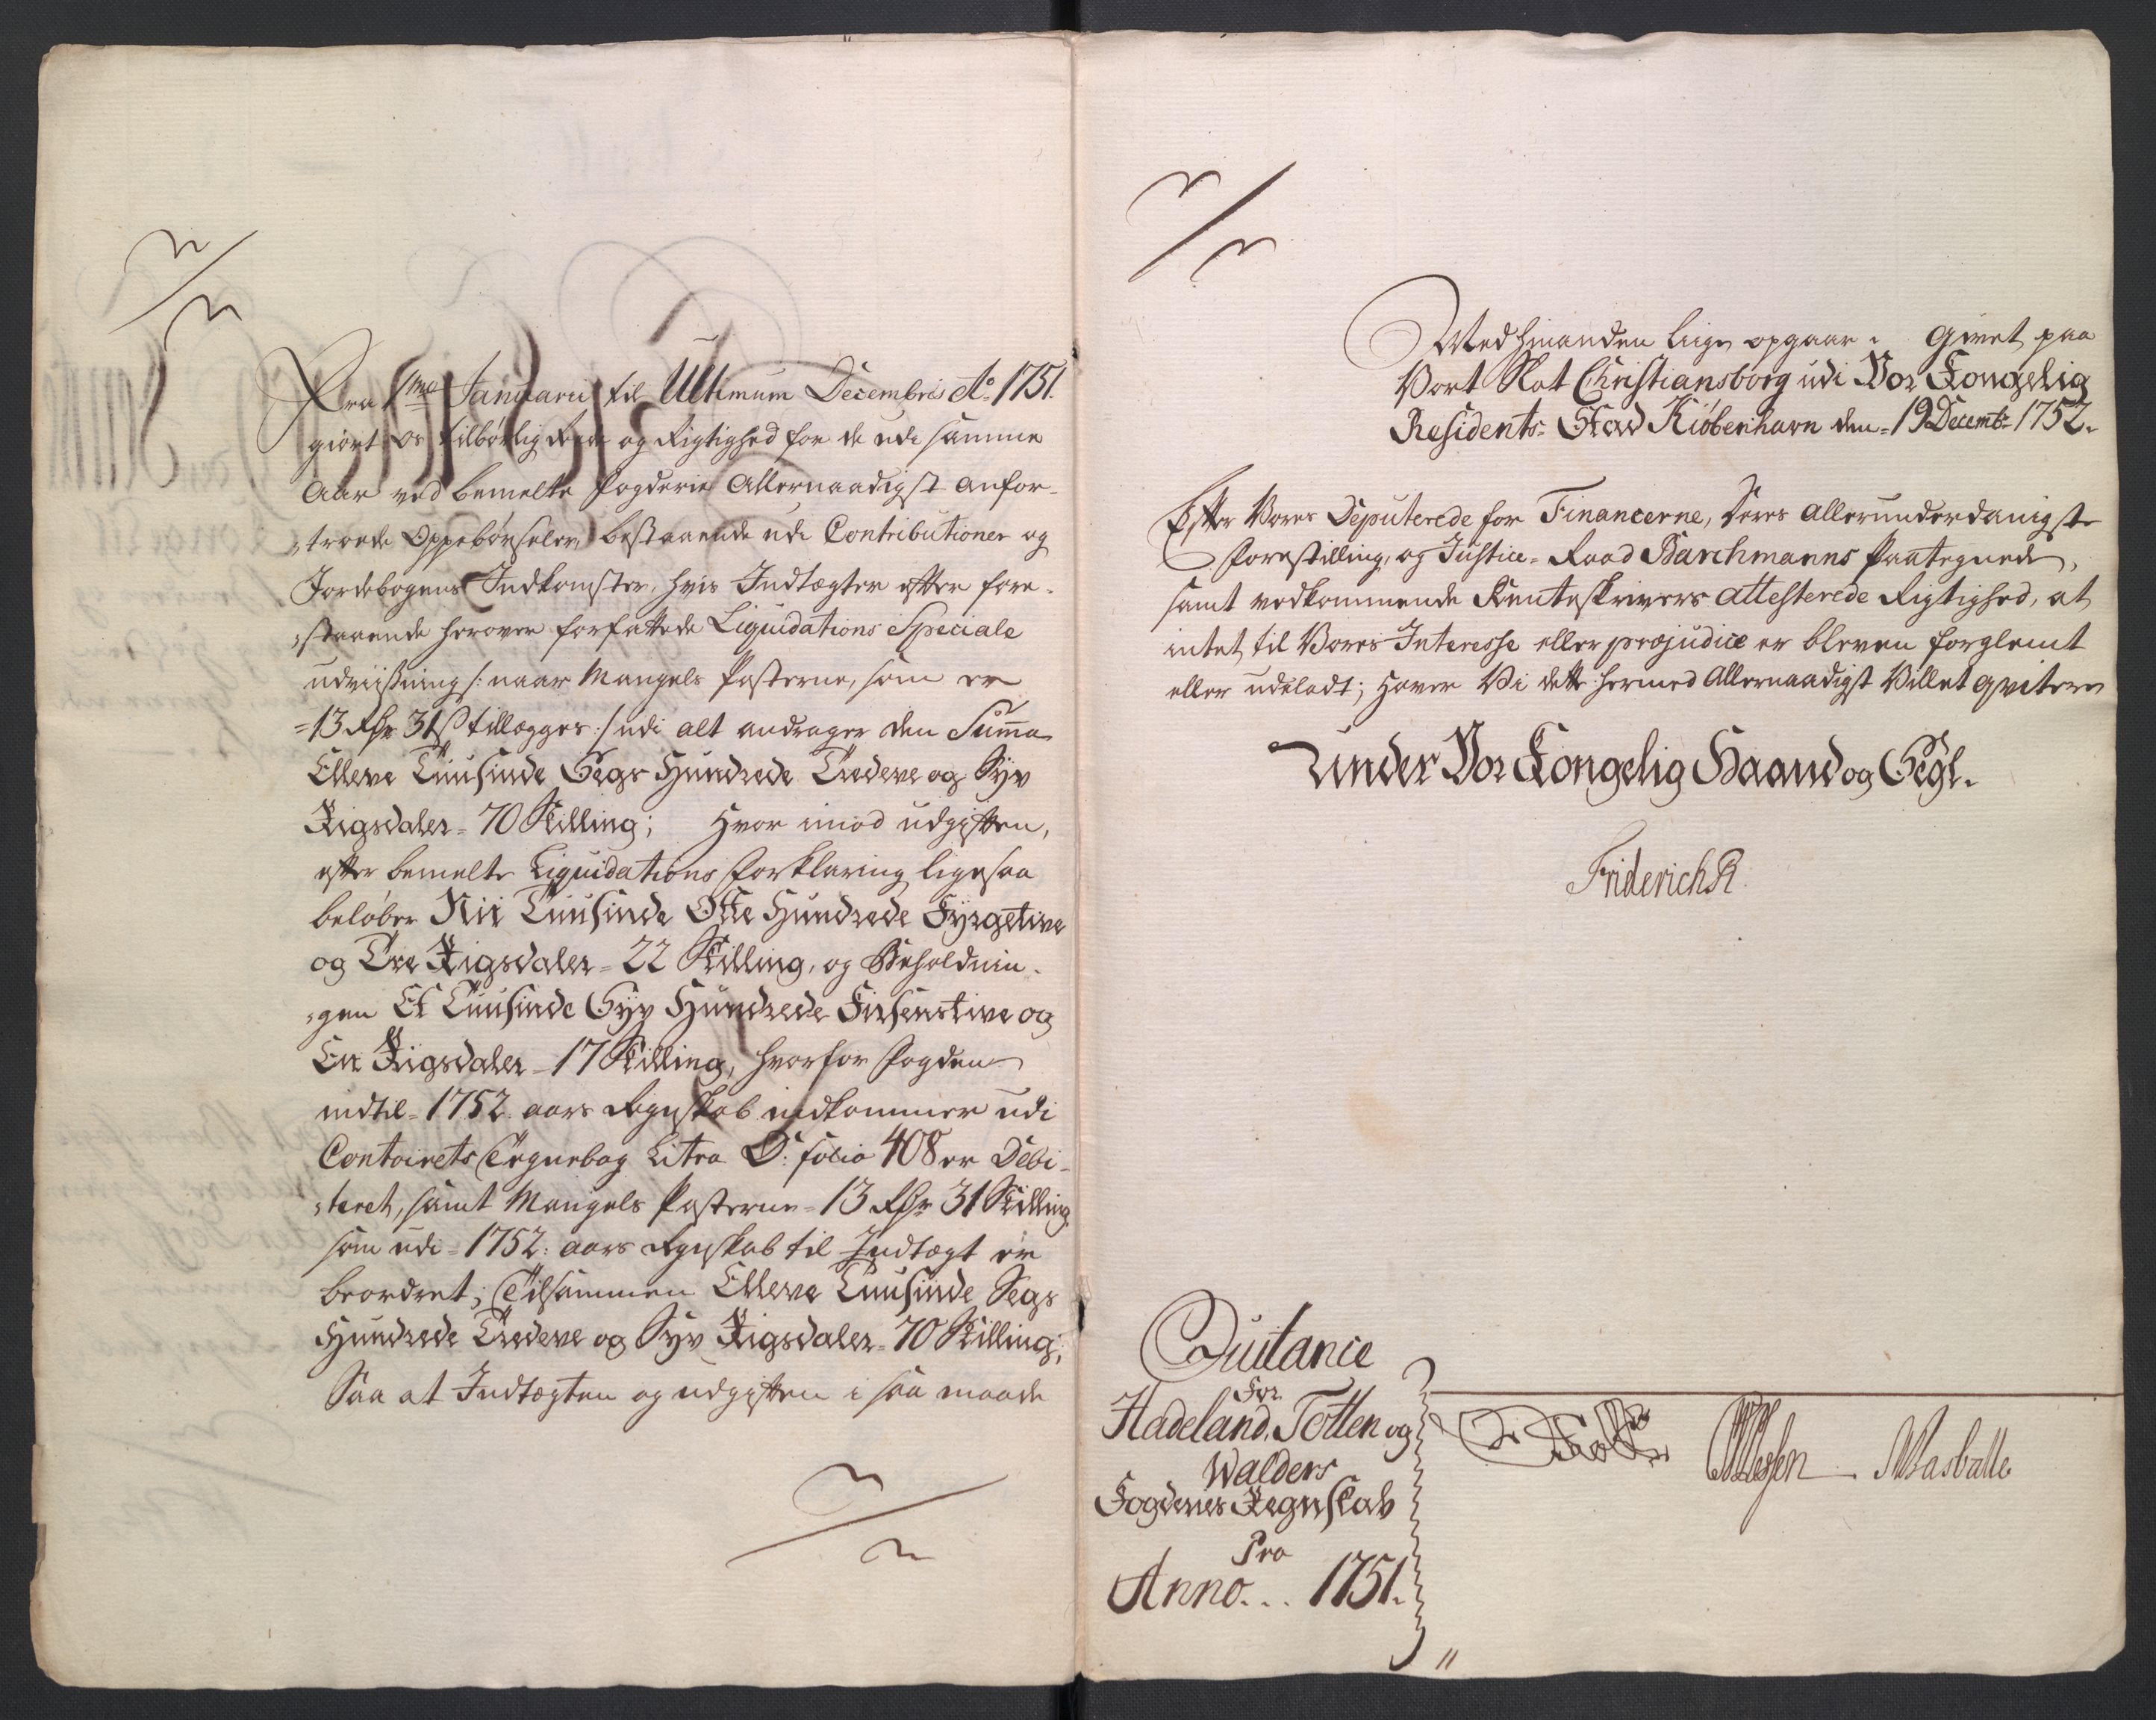 Fra 1mo Januarii til Ultimum Decembris Ao 1751.
giort os tilbørlig Rede og Rigtighed for de udi samme
Aar ved bemelte Fogderie Allernaadigst anfor-
-troede Oppebørseler, bestaaende udi Contributioner og
Jordebogens Indkomster, hvis Indtægter efter fore-
-staaende herover forfattede Liquidations Speciale
udviisning /: naar Mangels Posterne, som er
=13 Rdr 31 ß tillægges :/ udi alt andrager den Summa
Elleve Tuusinde Segs Hundrede Tredeve og Syv
Rigsdaler = 70 Skilling; Hvor imod udgiften,
efter bemelte Liquidations Forklaring ligesaa
beløber Nii Tuusinde Otte Hundrede Fyrgetive
og Tre Rigsdaler = 22 Skilling, og Beholdnin-
-gen Et Tuusinde Syv Hundrede Firsenstive og
En Rigsdaler = 17 Skilling, hvorfor Fogden
indtil = 1752 aars Regnskab indkommer udi
Contoirets Tegnebog Litra D: folio 408 er Debi-
-teret, samt Mangels Posterne = 13 Rdr 31 Skilling
som udi = 1752: aars Regnskab til Indtægt er
beordret; Tilsammen Elleve Tuusinde Segs
Hundrede Tredeve og Syv Rigsdaler = 70 Skilling;
Saa at Indtægten og udgiften i saa maade
Med hinanden lige opgaar. Givet paa
Vort Slot Christiansborg udi Vor Kongelig
Residents- Stad Kiøbenhavn den = 19 Decembr 1752.
Efter Vores Deputerede for Financerne, Deres allerunderdanigste
Forestilling, og Justice- Raad Barchmanns Paategnede,
samt vedkommende Renteskrivers attesterede Rigtighed, at
intet til Vores Interesse eller præjudice er bleven forglemt
eller udeladt; Haver Vi dette hermed Allernaadigst Villet qvitere
Under Vor Kongelig Haand og Segl.
Friderich R
Quitance
For
Hadeland, Totten og
Walders
Fogderies Regnskab
Pro
Anno... 1751.